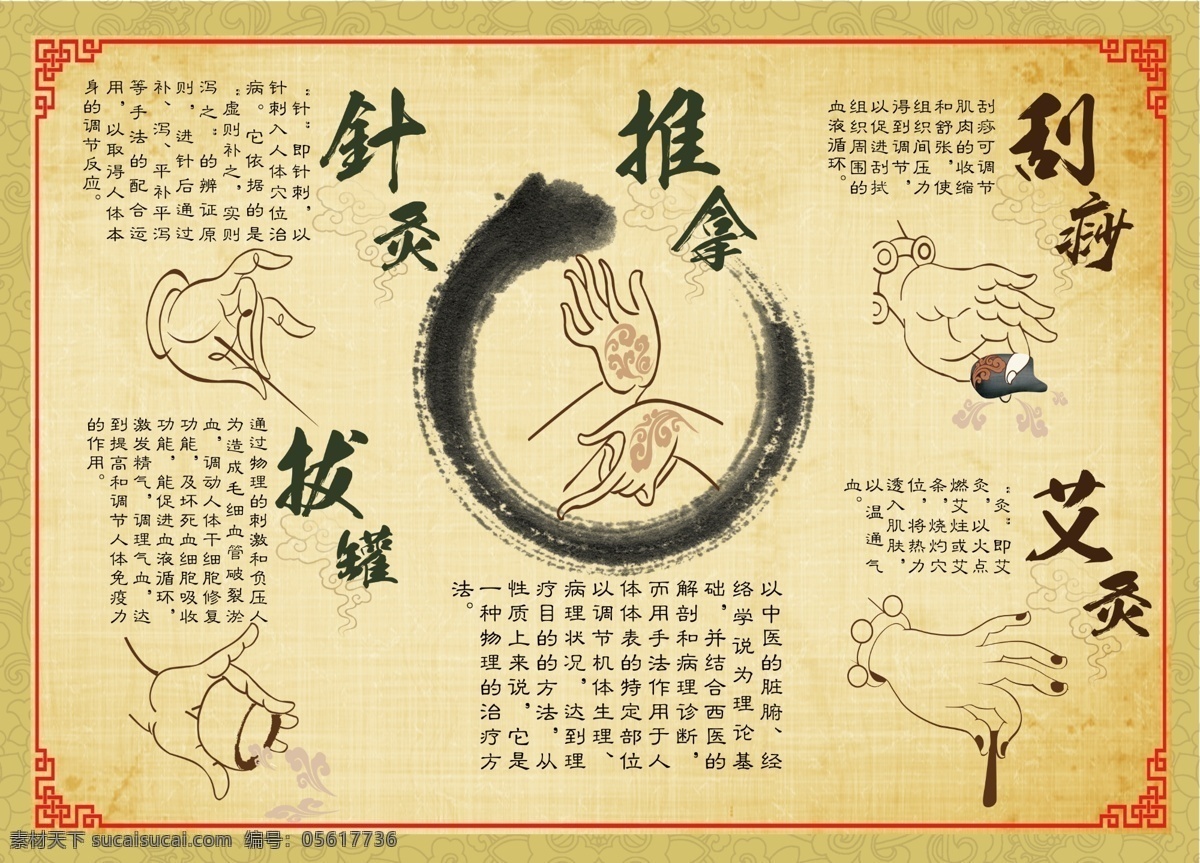 針灸
“针”即针刺，以
针刺入人体穴位治
病。它依据的是
“虚则补之，实则
泻之”的辨证原
则，进针后通过
补、泻、平补平泻
等手法的配合运
用，以取得人体本
身的调节反应。
推拿
以中医的脏腑、经
络学说为理论基
础，并结合西医的
解剖和病理诊断，
而用手法作用于人
体体表的特定部位
以调节机体生理、
病理状况，达到理
疗目的的方法，从
性质上来说，它是
一种物理的治疗方
法。
刮痧
刮痧可调节
肌肉的收缩
和舒张，使
组织间压力
得到调节，
以促进刮拭
组织周围的
血液循环。
拔罐
通过物理的刺激和负压人
为造成毛细血管破裂淤
血，调动人体干细胞修复
功能，及坏死血细胞吸收
功能，能促进血液循环，
激发精气，调理气血，达
到提高和调节人体免疫力
的作用。
艾灸
“灸”即艾
灸，以火点
燃艾炷或艾
条，烧灼穴
位，将热力
透入肌肤，
以温通气
血。
素材天下 sucaisucai.com 编号：05617736